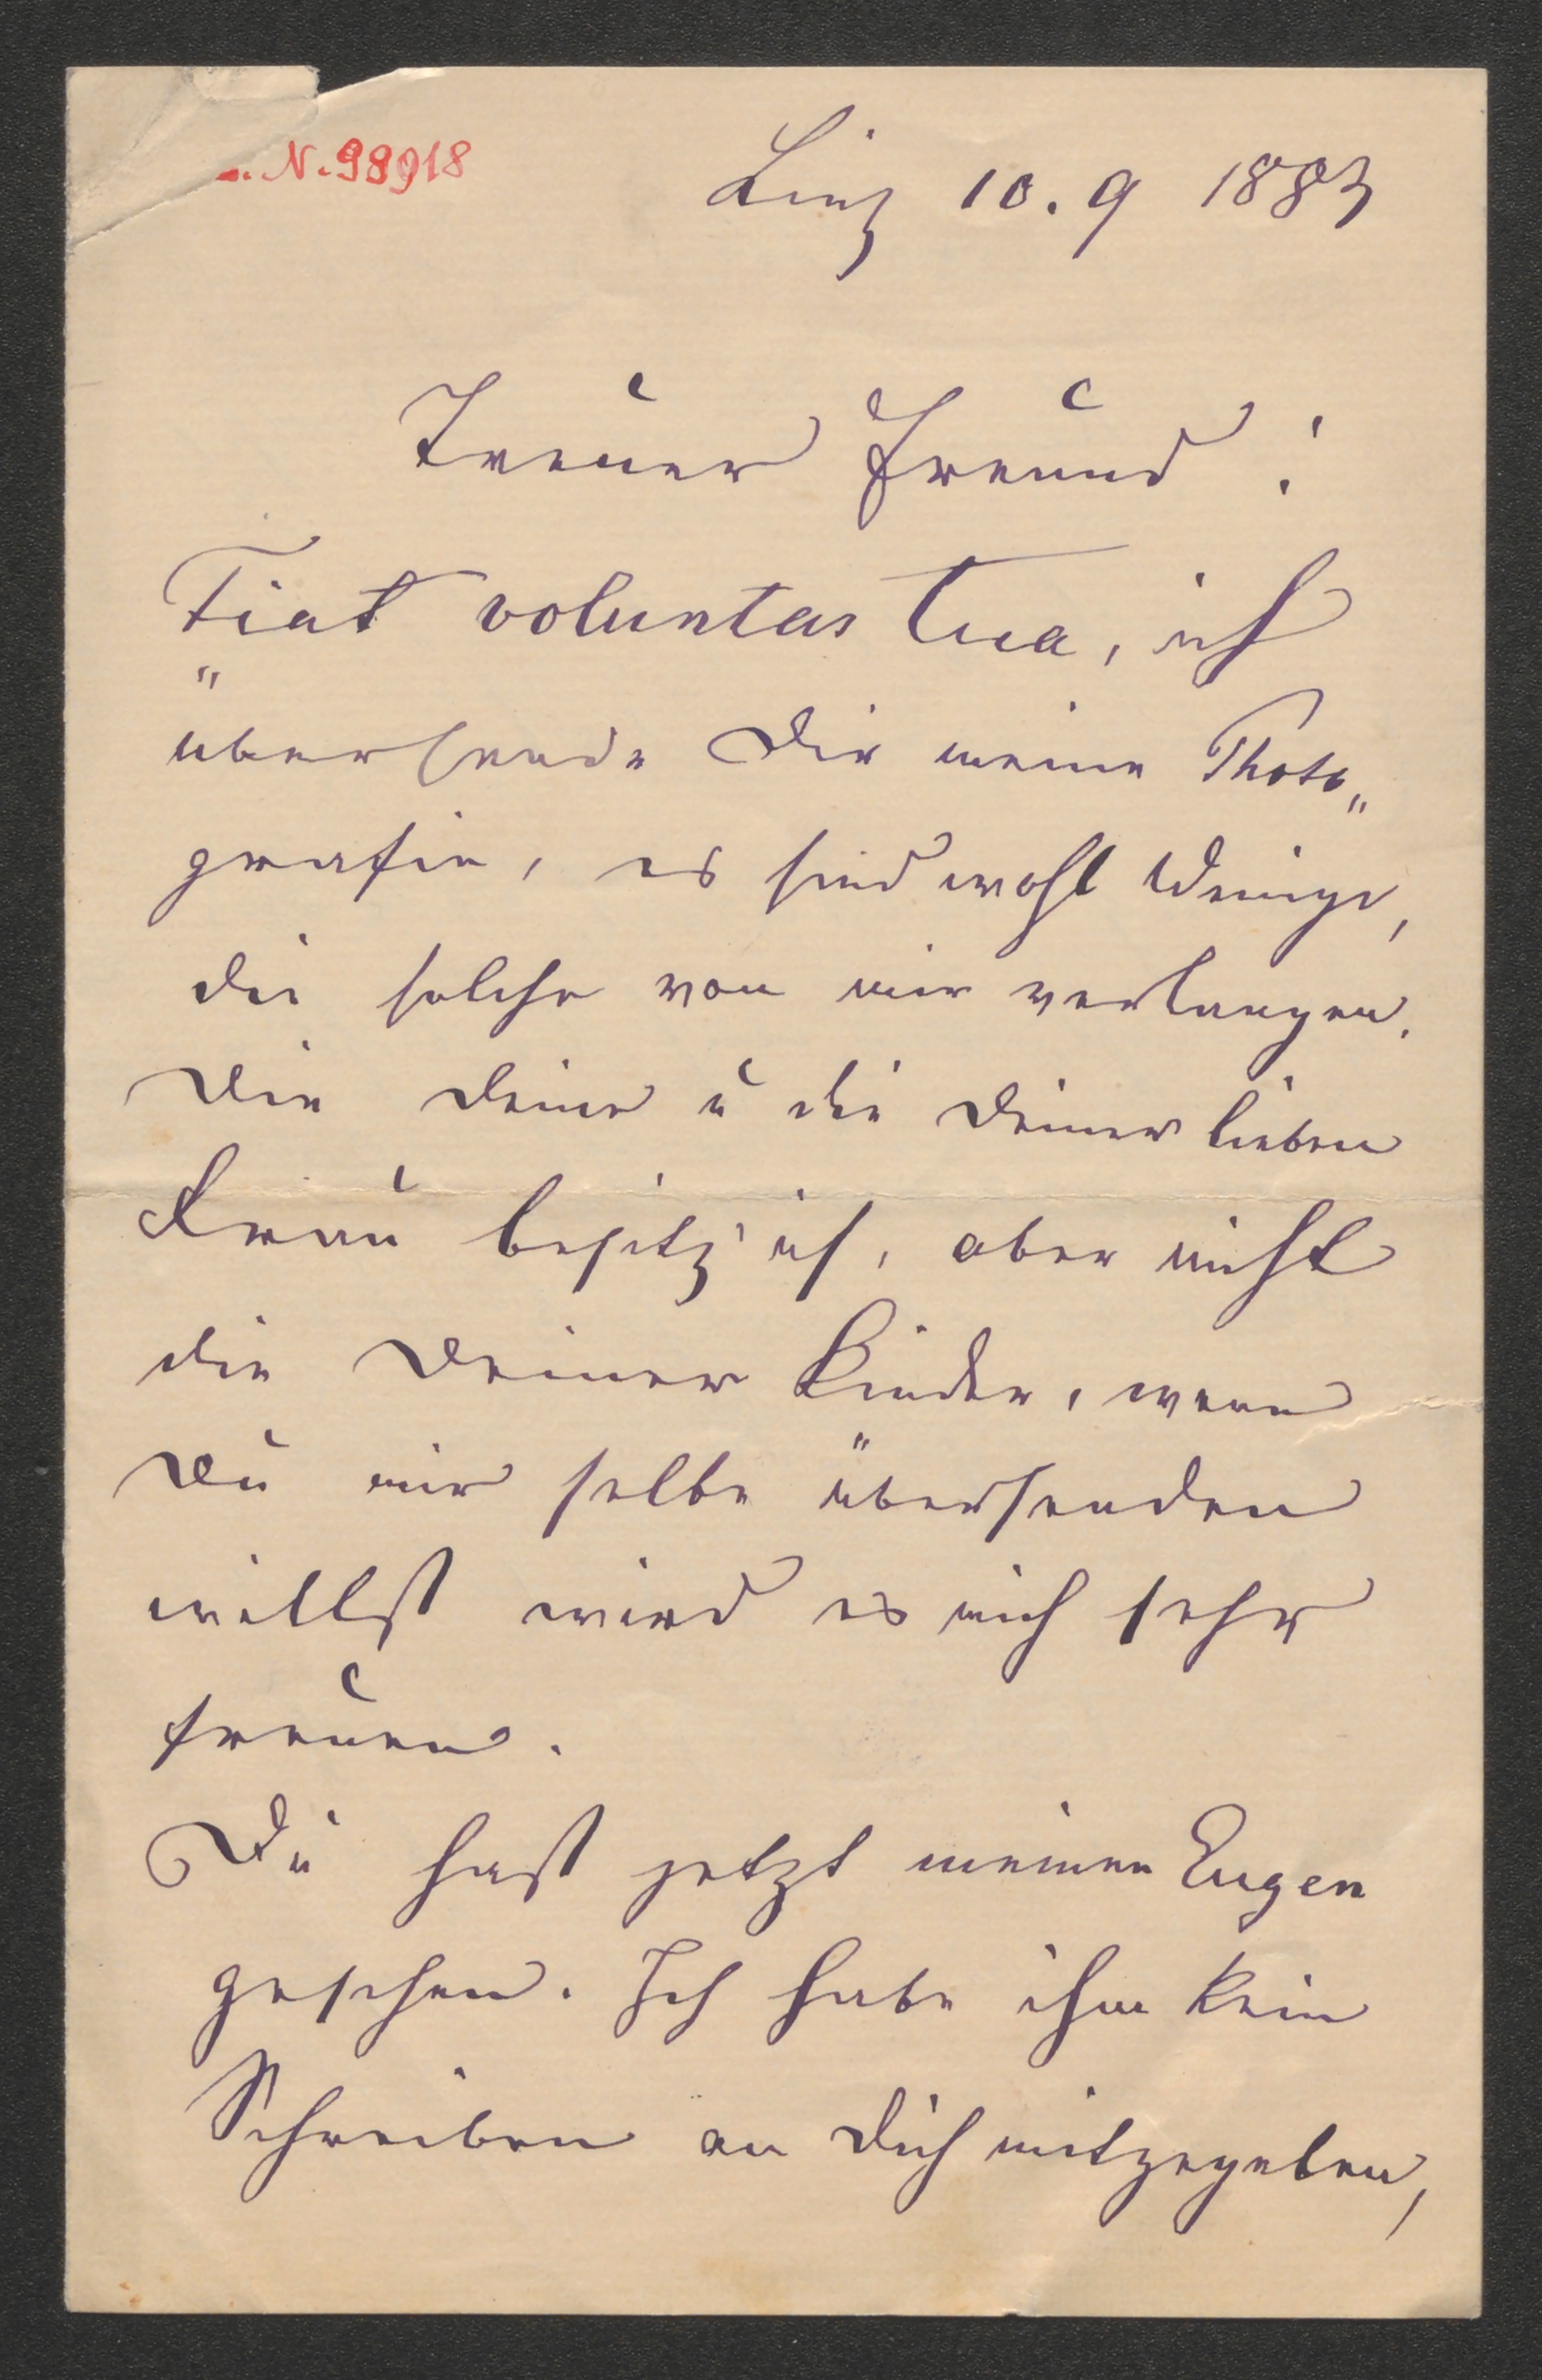 . N. 98918
Linz 10. 9 1883
Treuer Freund!
Fiat voluntas Tua, ich
übersende Dir meine Photo„
grafie, es sind wohl Wenige,
die solche von mir verlangen.
Die Deine u die Deiner lieben
Frau besitz' ich, aber nicht
die Deiner Kinder, wenn
Du mir selbe übersenden
willst wird es mich sehr
freuen.
Du hast jetzt meinen Eugen
gesehen. Ich habe ihm kein
Schreiben an Dich mitgegeben,